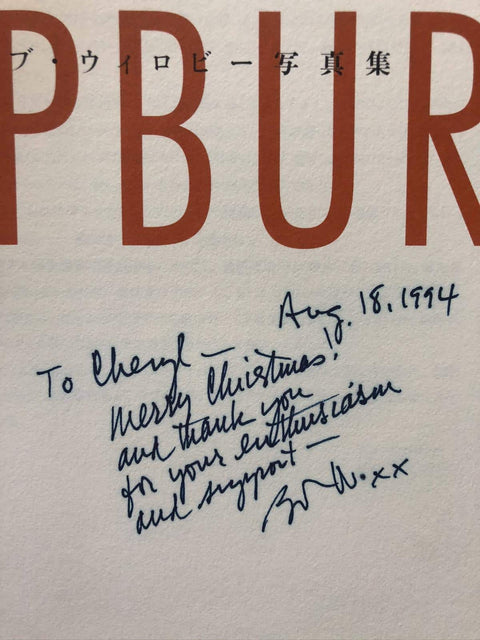 ブ・ウィロビー写真集
PBUR
Aug. 18, 1994
To Cheryl —
Merry Christmas!
and thank you
for your enthusiasm
and support —
Bob W. xx